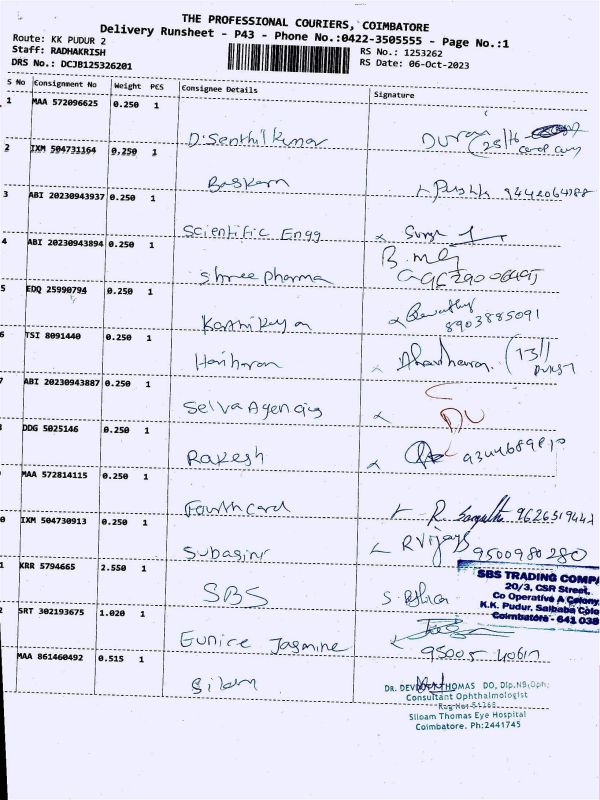 THE PROFESSIONAL COURIERS, COIMBATORE
Delivery Runsheet - P43 - Phone No.:0422-3505555 - Page No.:1
Route: KK PUDUR 2
RS No.: 1253262
Staff: RADHAKRISH
RS Date: 06-Oct-2023
DRS No.: DCJB125326201
S No Consignment No Weight PCS Consignee Details Signature
1 MAA 572096625 0.250 1
D.Senthil Kumar
2 IXM 504731164 0.250 1
Baskarn
3 ABI 20230943937 0.250 1
Scientific Engg
4 ABI 20230943894 0.250 1
Shree pharma
5 EDQ 25990794 0.250 1
Karthikeyan
8903885091
6 TSI 8091440 0.250 1
Hariharan
7 ABI 20230943887 0.250 1
Selva Agencies
DDG 5025146 0.250 1
Rakesh
MAA 572814115 0.250 1
Fourthcard
R. 9626519442
0 IXM 504730913 0.250 1
Subasini R Vijaya 9500980280
1 KRR 5794665 2.550 1
SBS
SBS TRADING COMPA
20/3, CSR Street,
Co Operative A Colony,
K.K. Pudur, Saibaba Colo
Coimbatore - 641 038
2 SRT 302193675 1.020 1
Eunice Jasmine
MAA 861460492 0.515 1
DR. THOMAS DO, Dip.NB,Oph;
Consultant Ophthalmologist
Siloam Thomas Eye Hospital
Coimbatore. Ph:2441745